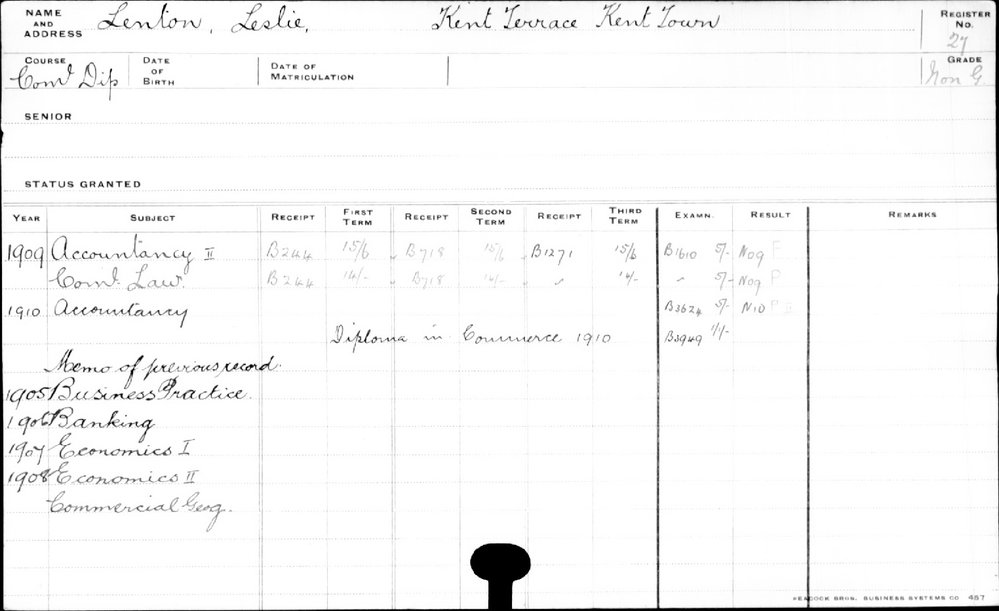 NAME AND ADDRESS Lenton, Leslie, Kent Terrace Kent Town REGISTER No. 27
COURSE Coml Dip DATE OF BIRTH DATE OF MATRICULATION GRADE Non G.
SENIOR
STATUS GRANTED
YEAR SUBJECT RECEIPT FIRST TERM RECEIPT SECOND TERM RECEIPT THIRD TERM EXAMN. RESULT REMARKS
1909 Accountancy II B244 15/6 B718 15/6 B1271 15/6 B1610 5/- N09 F
Coml. Law. B244 14/- B718 14/- " 14/- " 5/- N09 P
1910 Accountancy B3624 5/- N10 P II
Diploma in Commerce 1910 B3949 1/1/-
Memo of previous record.
1905 Business Practice.
1906 Banking
1907 Economics I
1908 Economics II
Commercial Geog.
PEACOCK BROS. BUSINESS SYSTEMS CO 457